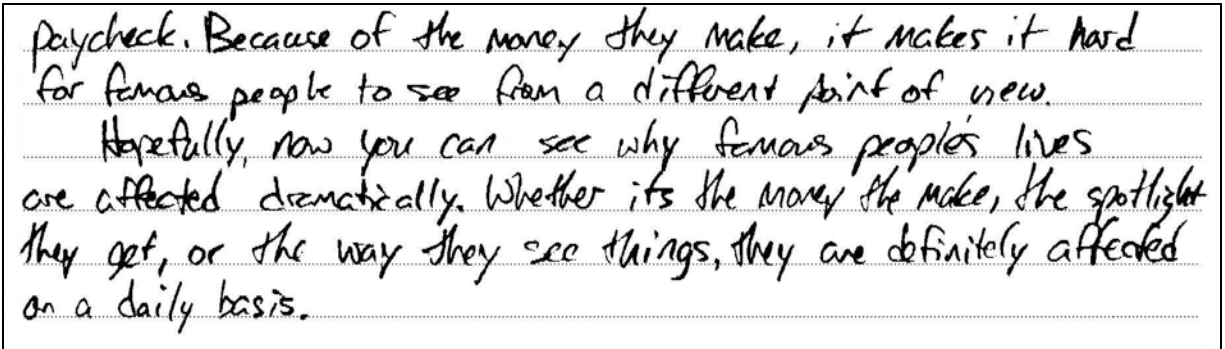 paycheck. Because of the money they make, it makes it hard
for famous people to see from a different point of view.
Hopefully, now you can see why famous people's lives
are affected dramatically. Whether its the money the make, the spotlight
they get, or the way they see things, they are definitely affected
on a daily basis.